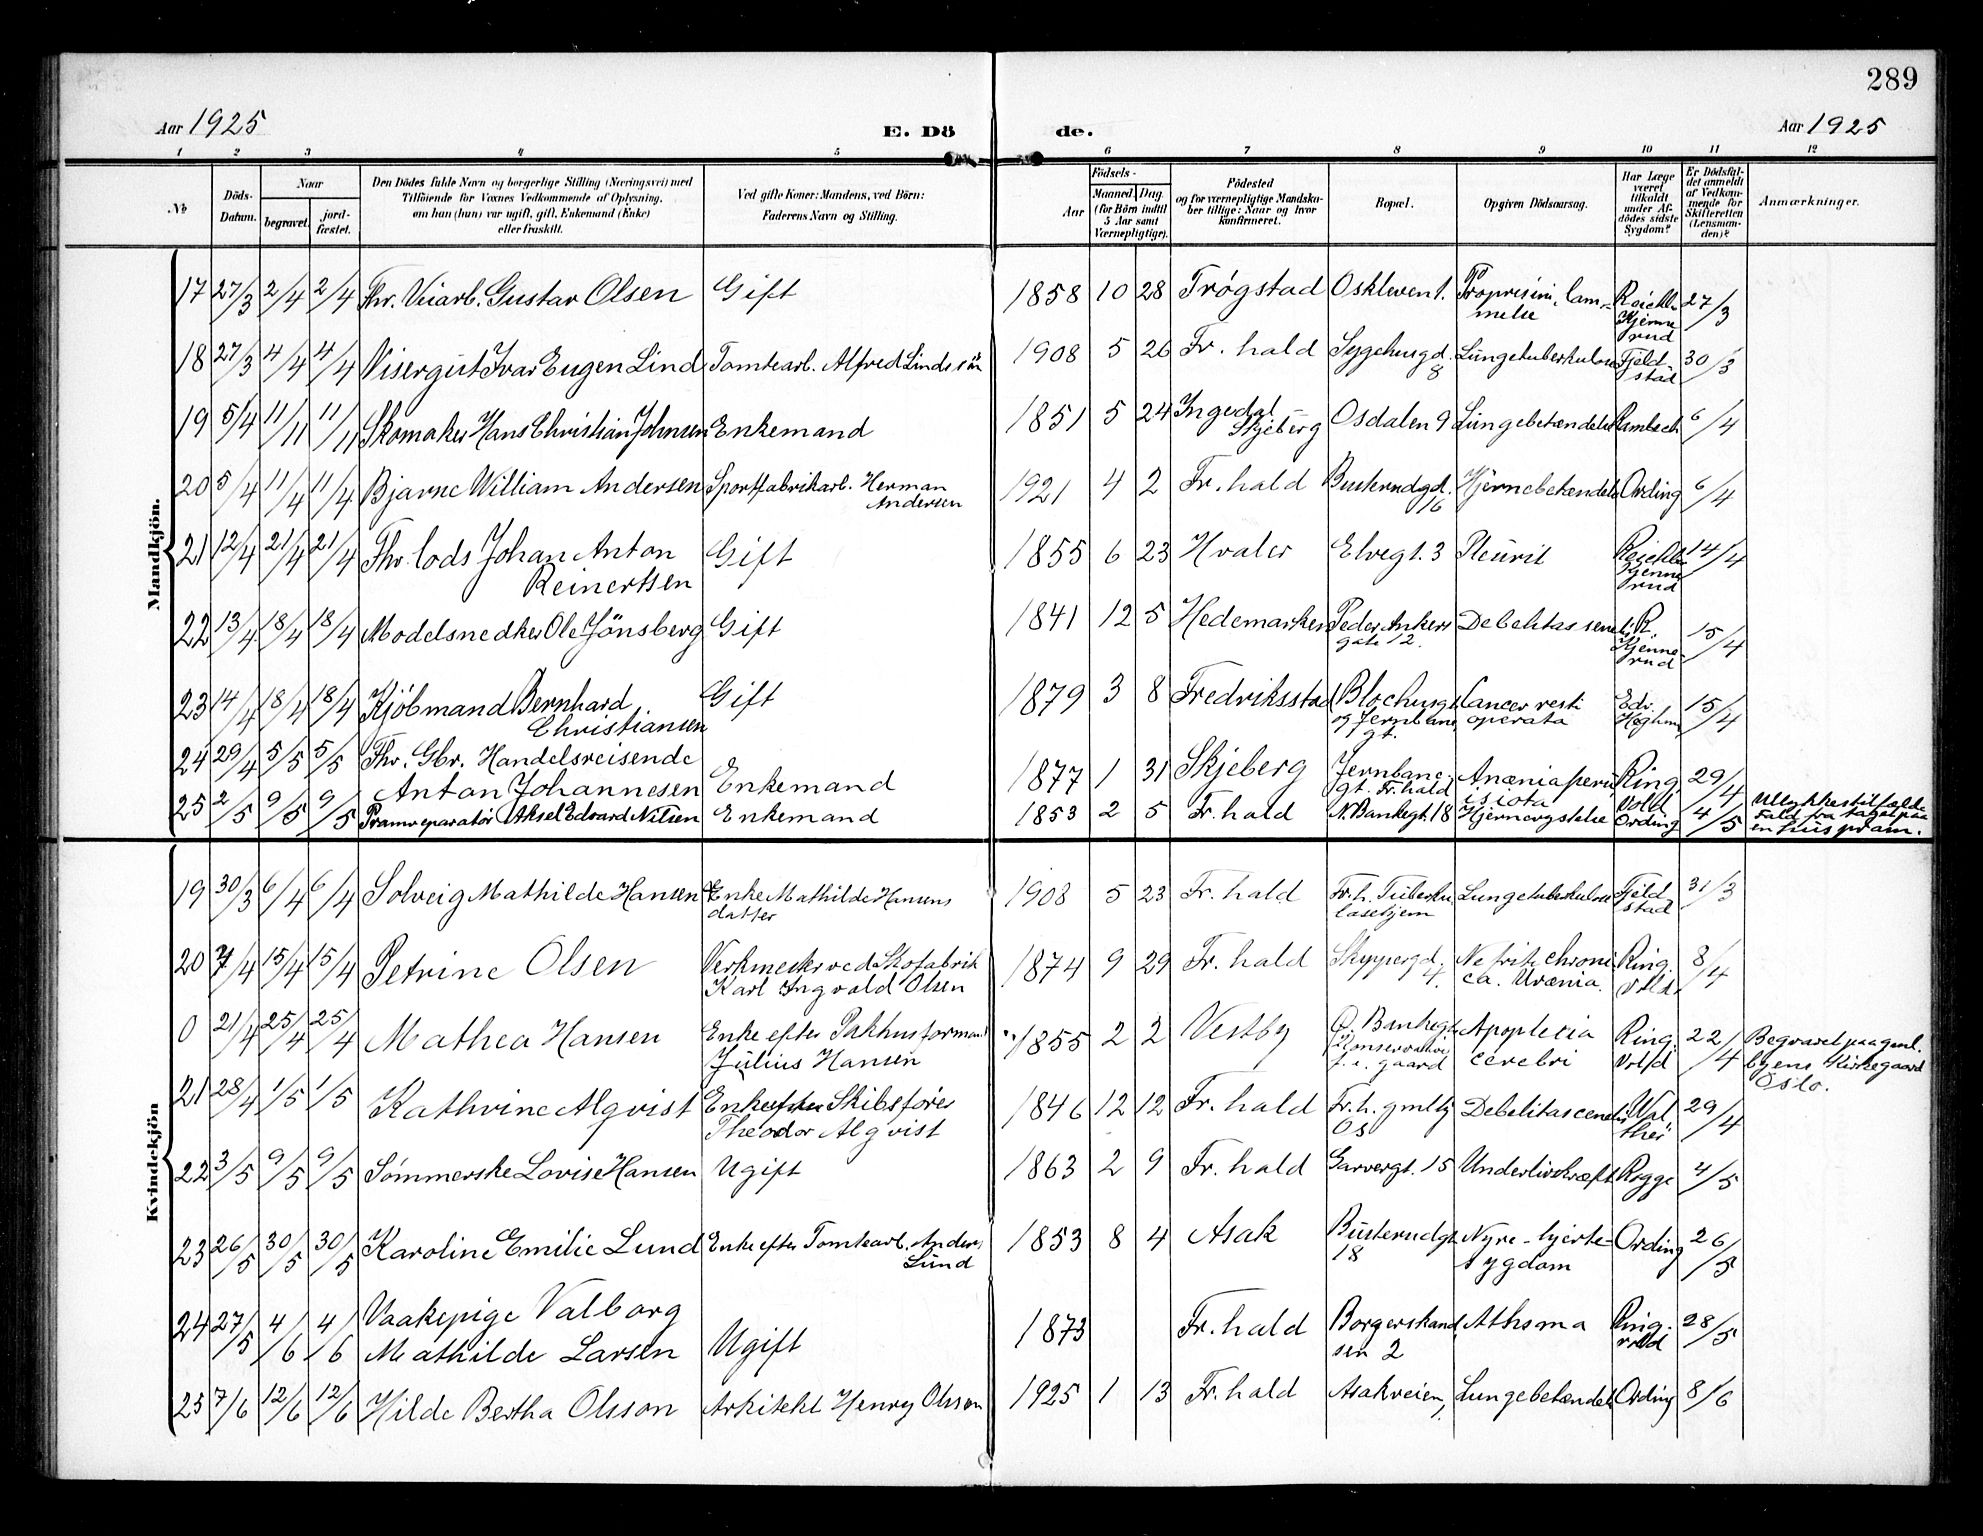 289
Aar 1925
E. Dö de.
Aar 1925
1 2 3 4 5 6 7 8 9 10 11 12
No
Döds-Datum.
Naar
begravet.
jord-fæstet.
Den Dödes fulde Navn og borgerlige Stilling (Næringsvei) med
Tilföiende for Voxnes Vedkommende af Oplysning,
om han (hun) var ugift, gift, Enkemand (Enke)
eller fraskilt.
Ved gifte Koner: Mandens, ved Börn:
Faderens Navn og Stilling.
Födsels-
Aar
Maaned
Dag
(for Börn indtil
5 Aar samt
Værnepligtige).
Födested
og for værnepligtige Mandska-
ber tillige: Naar og hvor
konfirmeret.
Bopæl.
Opgiven Dödsaarsag.
Har Læge
været
tilkaldt
under Af-
dödes sidste
Sygdom?
Er Dödsfal-
det anmeldt
af Vedkom-
mende for
Skifteretten
(Lensman-
den)?
Anmærkninger.
Mandkjön.
17 27/3 2/4 2/4 Fhv. Viarb. Gustav Olsen Gift 1858 10 28 Trøgstad Oskleven 1. 27/3
Kjenne
rud
18 27/3 4/4 4/4 Visergut Ivar Eugen Lind Tomtearb. Alfred Linds sön 1908 5 26 Fr. hald Sygehusgd. Lungetuberkulose Fjeld 30/3
8 stad
19 5/4 11/11 11/11 Skomaker Hans Christian Johnsen Enkemand 1851 5 24 Ingedal Osdalen 9 Lungebetændelse Rambech 6/4
Skjeberg
20 5/4 11/4 11/4 Bjarne William Andersen Sportfabrikarb. Herman 1921 4 2 Fr. hald Busterudgd. Hjernebetændelse Ording 6/4
Andersen 16
21 12/4 21/4 21/4 Fhv. lods Johan Anton Gift 1855 6 23 Hvaler Elvegt. 3 Pleurit 14/4
Reinertsen Kjenne
rud
22 13/4 18/4 18/4 Modelsnedker Ole Jönsberg Gift 1841 12 5 Hedemarken Peder Ankers Debelitas senelis R. 15/4
gate 12. Kjenne
rud
23 14/4 18/4 18/4 Kjöbmand Bernhard Gift 1879 3 8 Fredriksstad Blochusgt. Cancer resti Edv. 15/4
Christiansen og Jernbane operata
gt.
24 29/4 5/5 5/5 Fhv. Gbr. Handelsreisende 1877 1 31 Skjeberg Jernbane Anæmia perni Ring 29/4
Anton Johannesen Enkemand gt. Fr. hald vold
25 2/5 9/5 9/5 Pramreparatör Aksel Edvard Nilsen Enkemand 1853 2 5 Fr. hald N. Bankegt. 18 Hjernerystelse Ording 4/5 Ulykkestilfælde
Fald fra taget paa
en huspram.
Kvindekjön
19 30/3 6/4 6/4 Solveig Mathilde Hansen Enke Mathilde Hansens 1908 5 23 Fr. hald Fr. h. Tuberku Lungetuberkulose Fjeld 31/3
datter losehjem stad
20 7/4 15/4 15/4 Petrine Olsen Verkmester ved Skofabrik 1874 9 29 Fr. hald Skippergd. Nefritis chroni Ring. 8/4
Karl Ingvald Olsen 4. ca. Uræmia. vold
0 21/4 25/4 25/4 Mathea Hansen Enke efter Pakhusformand 1855 2 2 Vestby Ø. Bankegt. Apoplexia Ring 22/4 Begravet paa gml.
Julius Hansen gaard cerebri vold byens Kirkegaard
Oslo.
21 28/4 1/5 1/5 Kathrine Alqvist Enke efter Skibsförer 1846 12 12 Fr. hald Fr. h. gmlhj Debelitas cenelis Wal 29/4
Theodor Alqvist Os ther
22 3/5 9/5 9/5 Sömmerske Lovise Hansen Ugift 1863 2 9 Fr. hald Garvergt. 15 Underlivskræft Rygge 4/5
23 26/5 30/5 30/5 Karoline Emilie Lund Enke efter Tomtearb. Anders 1853 8 4 Asak Busterudgt. Nyre-hjerte- Ording 26/5
Lund 18 sygdom
24 27/5 4/6 4/6 Vaakepige Valborg Ugift 1873 Fr. hald Borgerskand Athsma Ring. 28/5
Mathilde Larsen sen 2 vold
25 7/6 12/6 12/6 Hilde Bertha Olsson Arkitekt Henry Olsson 1925 1 13 Fr. hald Asakveien Lungebetændelse Ording 8/6